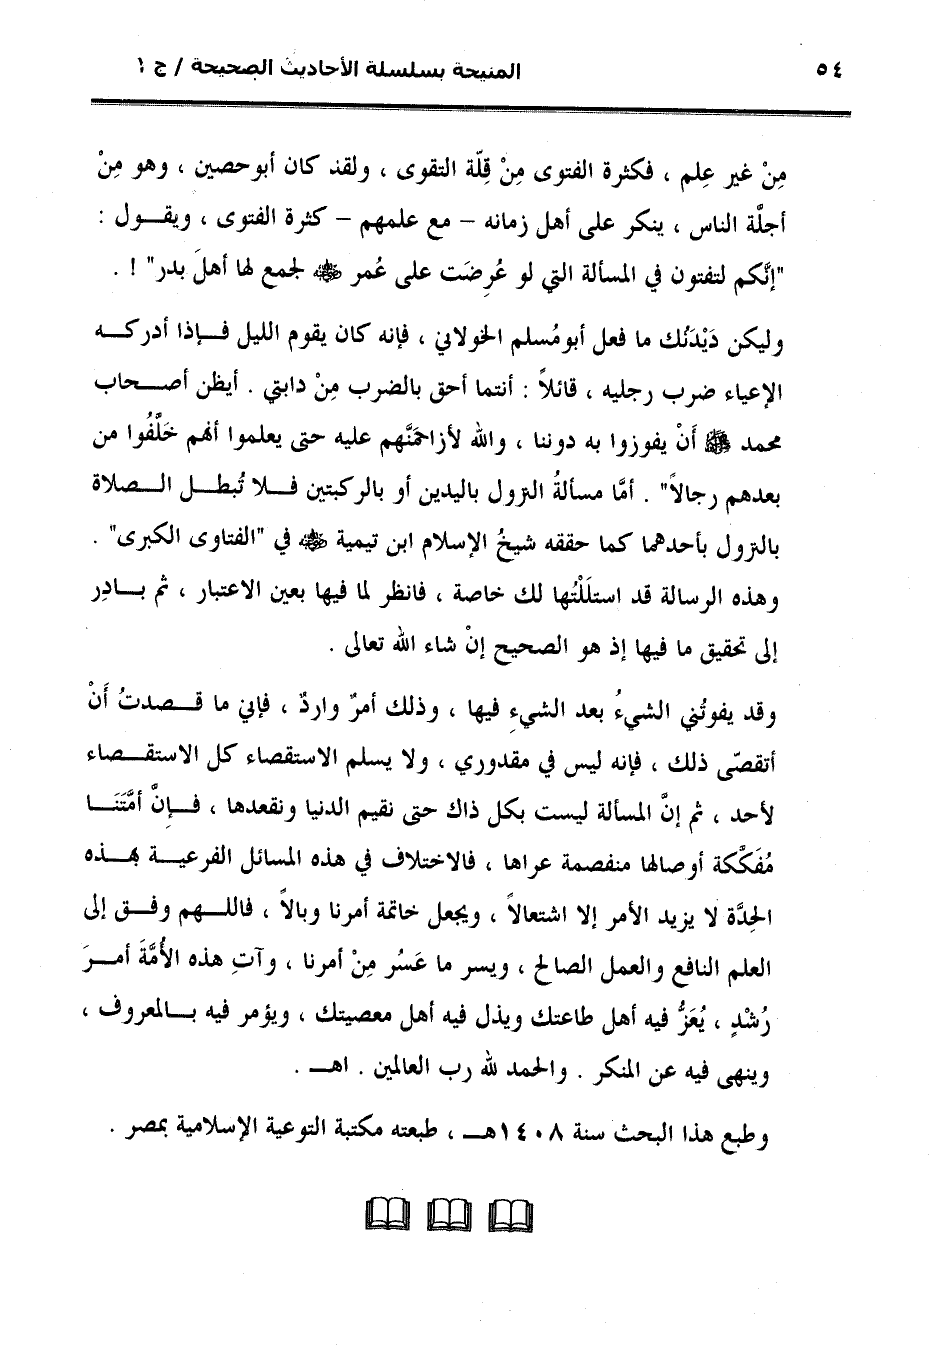 ٥٤ المنيحة بسلسلة الأحاديث الصحيحة / ج ١
مِنْ غير عِلم ، فكثرة الفتوى مِنْ قِلَّة التقوى ، ولقذ كان أبوحصين ، وهو مِنْ
أجلَّة الناس ، ينكر على أهل زمانه – مع علمهم – كثرة الفتوى ، ويقـــول :
"إنَّكم لتفتون في المسألة التي لو عُرِضَت على عُمر ﷺ لجمع لها أهلَ بدر" ! .
وليكن دَيْدَنُك ما فعل أبومُسلم الخولاني ، فإنه كان يقوم الليل فـــإذا أدركـــه
الإعياء ضرب رجليه ، قائلاً : أنتما أحق بالضرب مِنْ دابتي . أيظن أصـــحاب
محمد ﷺ أَنْ يفوزوا به دوننا ، والله لأزاحمنَّهم عليه حتى يعلموا أنهم خَلَّفُوا من
بعدهم رجالاً" . أمَّا مسألةُ النزول باليدين أو بالركبتين فـــلا تُبطـــل الـــصلاة
بالنزول بأحدهما كما حققه شيخُ الإسلام ابن تيمية ﷺ في "الفتاوى الكبرى" .
وهذه الرسالة قد استلَلْتُها لك خاصة ، فانظر لما فيها بعين الاعتبار ، ثم بـــادِر
إلى تحقيق ما فيها إذ هو الصحيح إنْ شاء الله تعالى .
وقد يفوتُني الشيءُ بعد الشيءِ فيها ، وذلك أمرٌ واردٌ ، فإني ما قـــصدتُ أَنْ
أتقصّى ذلك ، فإنه ليس في مقدوري ، ولا يسلم الاستقصاء كل الاستقـــصاء
لأحد ، ثم إنَّ المسألة ليست بكل ذاك حتى نقيم الدنيا ونقعدها ، فـــإنَّ أمَّتَنَـــا
مُفَكَّكة أوصالها منفصمة عراها ، فالاختلاف في هذه المسائل الفرعيـــة بهـــذه
الحِدَّة لا يزيد الأمر إلا اشتعالاً ، ويجعل خاتمة أمرنا وبالاً ، فاللـــهم وفـــق إلى
العلم النافع والعمل الصالح ، ويسر ما عَسُر مِنْ أمرنا ، وآتِ هذه الأُمَّةَ أمـــرَ
رُشْدٍ ، يُعَزُّ فيه أهل طاعتك ويذل فيه أهل معصيتك ، ويؤمر فيه بـــالمعروف ،
وينهى فيه عن المنكر . والحمد لله رب العالمين . اهـــ .
وطبع هذا البحث سنة ١٤٠٨هـــ ، طبعته مكتبة التوعية الإسلامية بمصر .